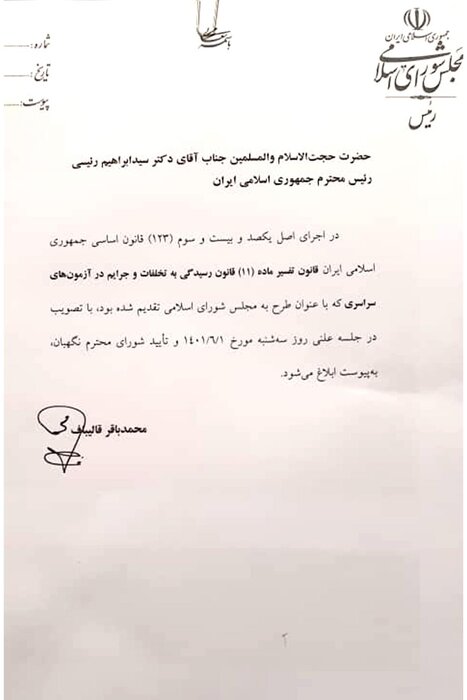 جمهوری اسلامی ایران
مجلس شورای اسلامی
رئیس
شماره:
تاریخ:
پیوست:
حضرت حجت‌الاسلام والمسلمین جناب آقای دکتر سیدابراهیم رئیسی
رئیس محترم جمهوری اسلامی ایران
در اجرای اصل یکصد و بیست و سوم (۱۲۳) قانون اساسی جمهوری
اسلامی ایران قانون تفسیر ماده (۱۱) قانون رسیدگی به تخلفات و جرایم در آزمون‌های
سراسری که با عنوان طرح به مجلس شورای اسلامی تقدیم شده بود، با تصویب
در جلسه علنی روز سه‌شنبه مورخ ۱۴۰۱/۶/۱ و تأیید شورای محترم نگهبان،
به‌پیوست ابلاغ می‌شود.
محمدباقر قالیباف